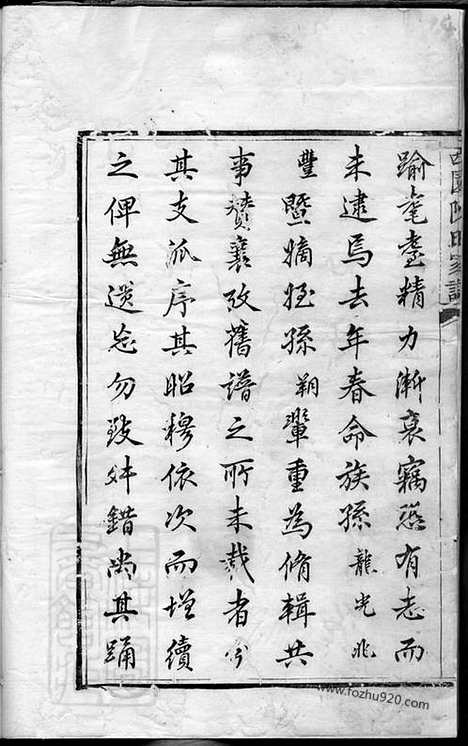 踰耄耋精力漸衰竊恐有志而
未逮焉去年春命族孫龍光兆
豐暨嫡姪孫朔輩重為脩輯共
事贊襄攷舊譜之所未載者分
其支派序其昭穆依次而增續
之俾無遺忘勿致舛錯尚其踊
陳氏家譜
www.fozhu920.com